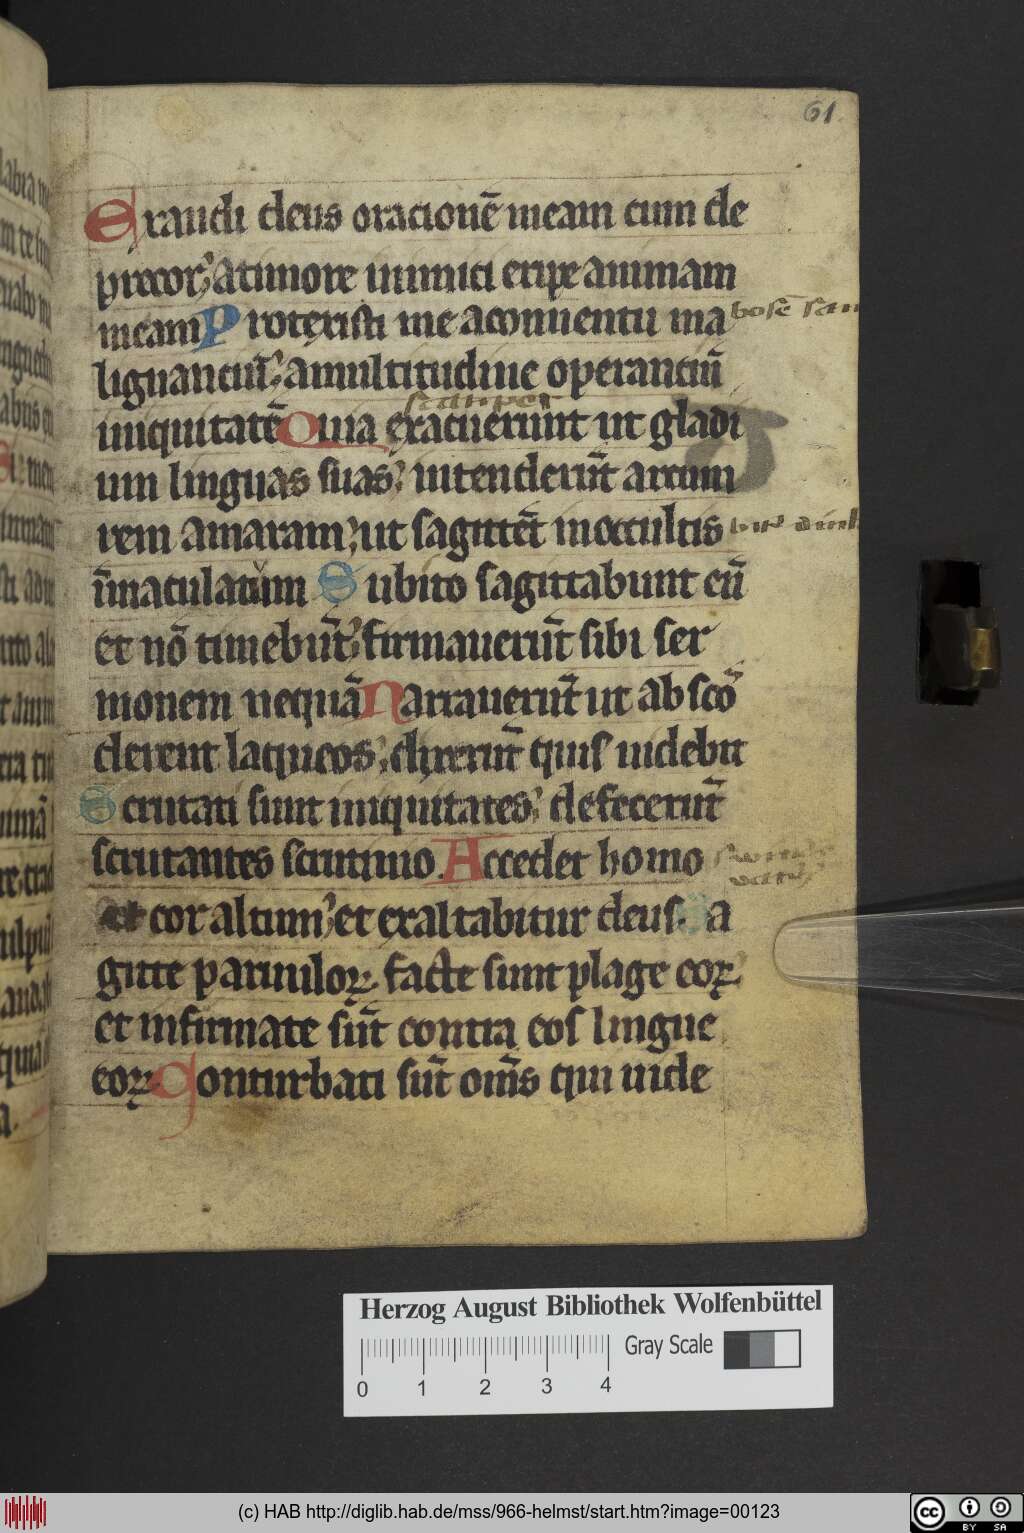 61
Exaudi deus oracionē meam cum de
precor; a timore inimici eripe animam
meam Protexisti me a conuentu ma
lignanciū; a multitudine operanciū
iniquitatē Quia exacuerunt ut gladi
um linguas suas; intenderūt arcum
rem amaram; ut sagittēt in occultis
īmaculatum Subito sagittabunt eū
et nō timebūt; firmauerūt sibi ser
monem nequā Narrauerūt ut absco
derent laqueos; dixerūt quis uidebit
Scrutati sunt iniquitates; defecerūt
scrutantes scrutinio. Accedet homo
cor altum; et exaltabitur deus. Sa
gitte paruuloꝝ facte sunt plage eoꝝ
et infirmate sūt contra eos lingue
eoꝝ Conturbati sūt om̄s qui uide
Herzog August Bibliothek Wolfenbüttel
Gray Scale
0 1 2 3 4
(c) HAB http://diglib.hab.de/mss/966-helmst/start.htm?image=00123
cc BY SA